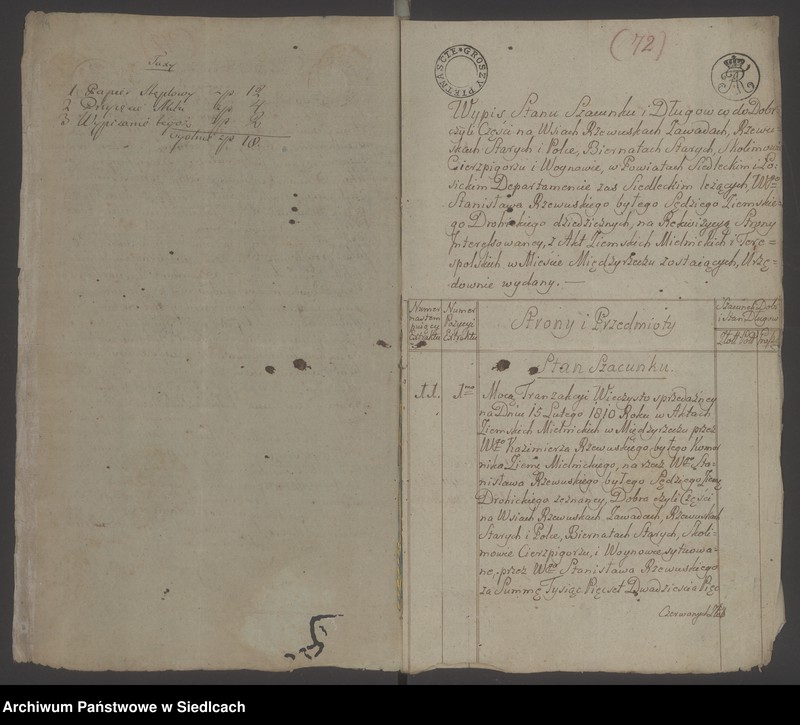 1 Papier Stęplowy zp 12
zp 4
3 Wypisanie tegoż zp 2
zp 18.
(72)
GROSZY PIĘTNAŚCIE
Wypis Stanu Szacunku i Długow co do Dobr
czyli Części na Wsiach Rzewuskach Zawadach, Rzewu-
skach Starych i Polce, Biernatach Starych, Skolimowie
Cierzpigorzu i Woynowie, w Powiatach Siedleckim i Ło-
sickim Departamencie zaś Siedleckim leżących, Wgo
Stanisława Rzewuskiego byłego Sędziego Ziemskie-
go Drohickiego dziedzicznych, na Rekwizycyą Strony
Interessowaney, z Akt Ziemskich Mielnickich i Tere=
spolskich w Mieście Międzyrzeczu zostaiących, Urzę-
downie wydany. —
Numer
następ
puiący
Extraktu
Numer
Pozycyi
Extraktu
Strony i Przedmioty
Szacunek Dobr
i Stan Długow
Złott Pol
Stan Szacunku.
11. 1mo Mocą Tranzakcyi Wieczysto sprzedażney
na Dniu 15 Lutego 1810 Roku w Aktach
Ziemskich Mielnickich w Międzyrzeczu przez
Wgo Kazimierza Rzewuskiego byłego Komor
nika Ziemi Mielnickiego, na rzecz Wgo Sta-
nisława Rzewuskiego byłego Sędziego Ziemi
Drohickiego zeznaney, Dobra czyli Części
na Wsiach Rzewuskach, Zawadach, Rzewuskach
Starych i Polce, Biernatach Starych, Skoli-
mowie Cierzpigorzu, i Woynowie sytuowa-
ne, przez Wgo Stanisława Rzewuskiego
za Summę Tysiąc Pięćset Dwadzieścia Pięć
Czerwonych Złot
Archiwum Państwowe w Siedlcach